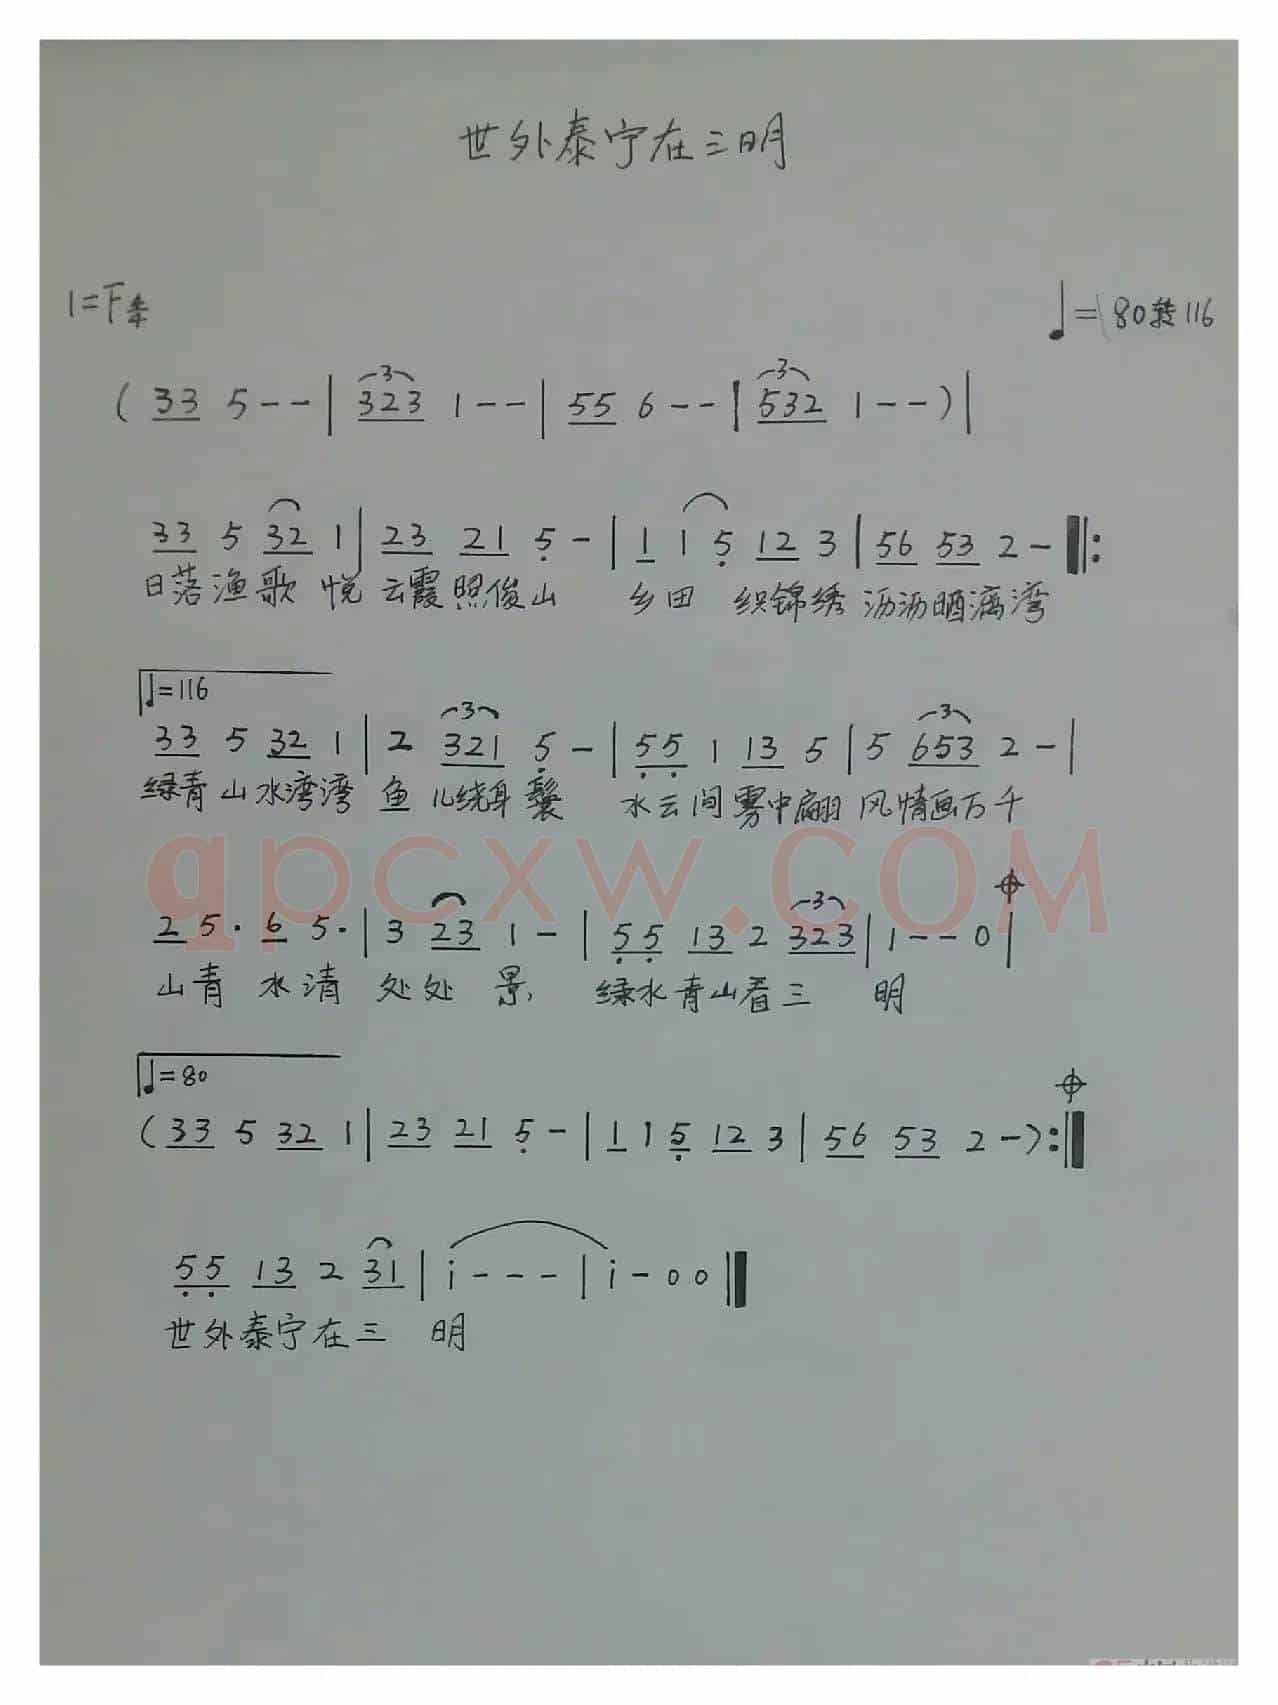 世外泰宁在三明
1=F 4/4
♩=80转116
( 33 5 - - | 323 1 - - | 55 6 - - | 532 1 - - ) |
33 5 32 1 | 23 21 5 - | 1 1 5 12 3 | 56 53 2 - ‖:
日落渔歌 悦 云霞照俊山 乡田 织锦绣 沥沥晒漓湾
♩=116
33 5 32 1 | 2 321 5 - | 55 1 13 5 | 5 653 2 - |
绿青山水湾湾 鱼儿绕身鬟 水云间雾中翩 风情画万千
qpcxw.COM
2 5· 6 5· | 3 23 1 - | 55 13 2 323 | 1 - - 0 |
山青 水清 处处 景, 绿水青山看三 明
♩=80
( 33 5 32 1 | 23 21 5 - | 1 1 5 12 3 | 56 53 2 - ) :‖
55 13 2 31 | i - - - | i - 0 0 ‖
世外泰宁在三 明